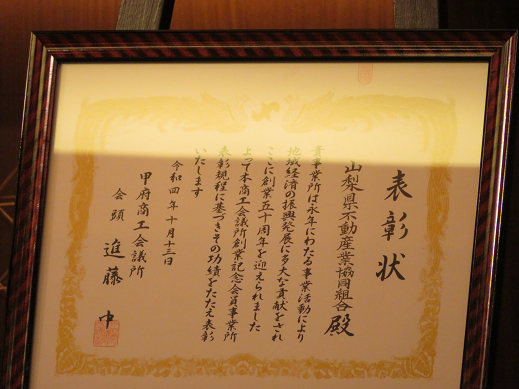 表彰状
山梨県不動産業協同組合 殿
貴事業所は永年にわたる事業活動により
地域経済の振興発展に多大な貢献をされ
ここに創業五十周年を迎えられました
よって本商工会議所創業記念会員事業所
表彰規程に基づきその功績をたたえ表彰
いたします
令和四年十月十三日
甲府商工会議所
会頭 進藤 中